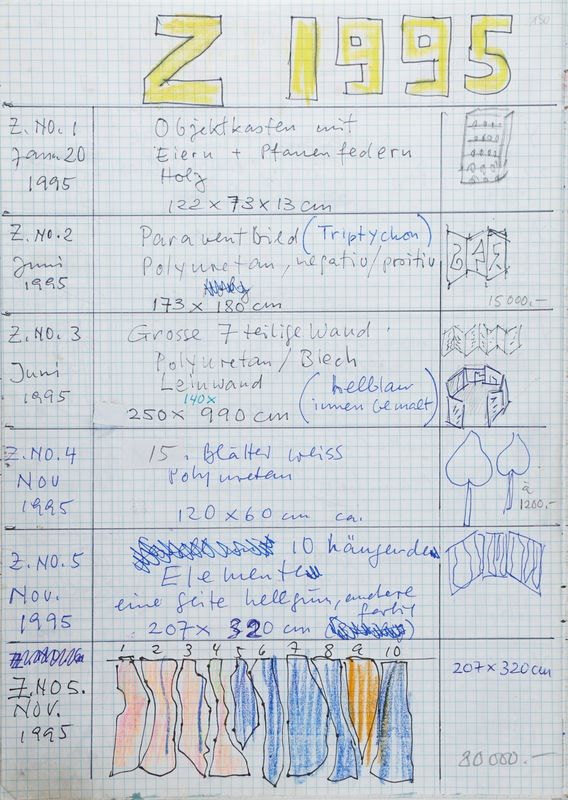 Z 1995
150
Z.NO.1
Jann.20
1995
Objektkasten mit
Eiern + Pfauenfedern
Holz
122 x 73 x 13 cm
Z.NO.2
Juni
1995
Paraventbild (Triptychon)
Polyuretan, negativ/proitiv
173 x 180 cm
15000.-
Z.NO.3
Juni
1995
Grosse 7 teilige Wand
Polyuretan / Blech
Leinwand
140x
250 x 990 cm (hellblau
innen bemalt)
Z.NO.4
Nov
1995
15. Blätter weiss
Polyuretan
120 x 60 cm ca.
à
1200.-
Z.NO.5
Nov.
1995
10 hängende
Elemente
eine Seite hellgrün, andere
farbig
207 x 320 cm
Z.NO5.
NOV.
1995
1 2 3 4 5 6 7 8 9 10
207 x 320 cm
80000.-